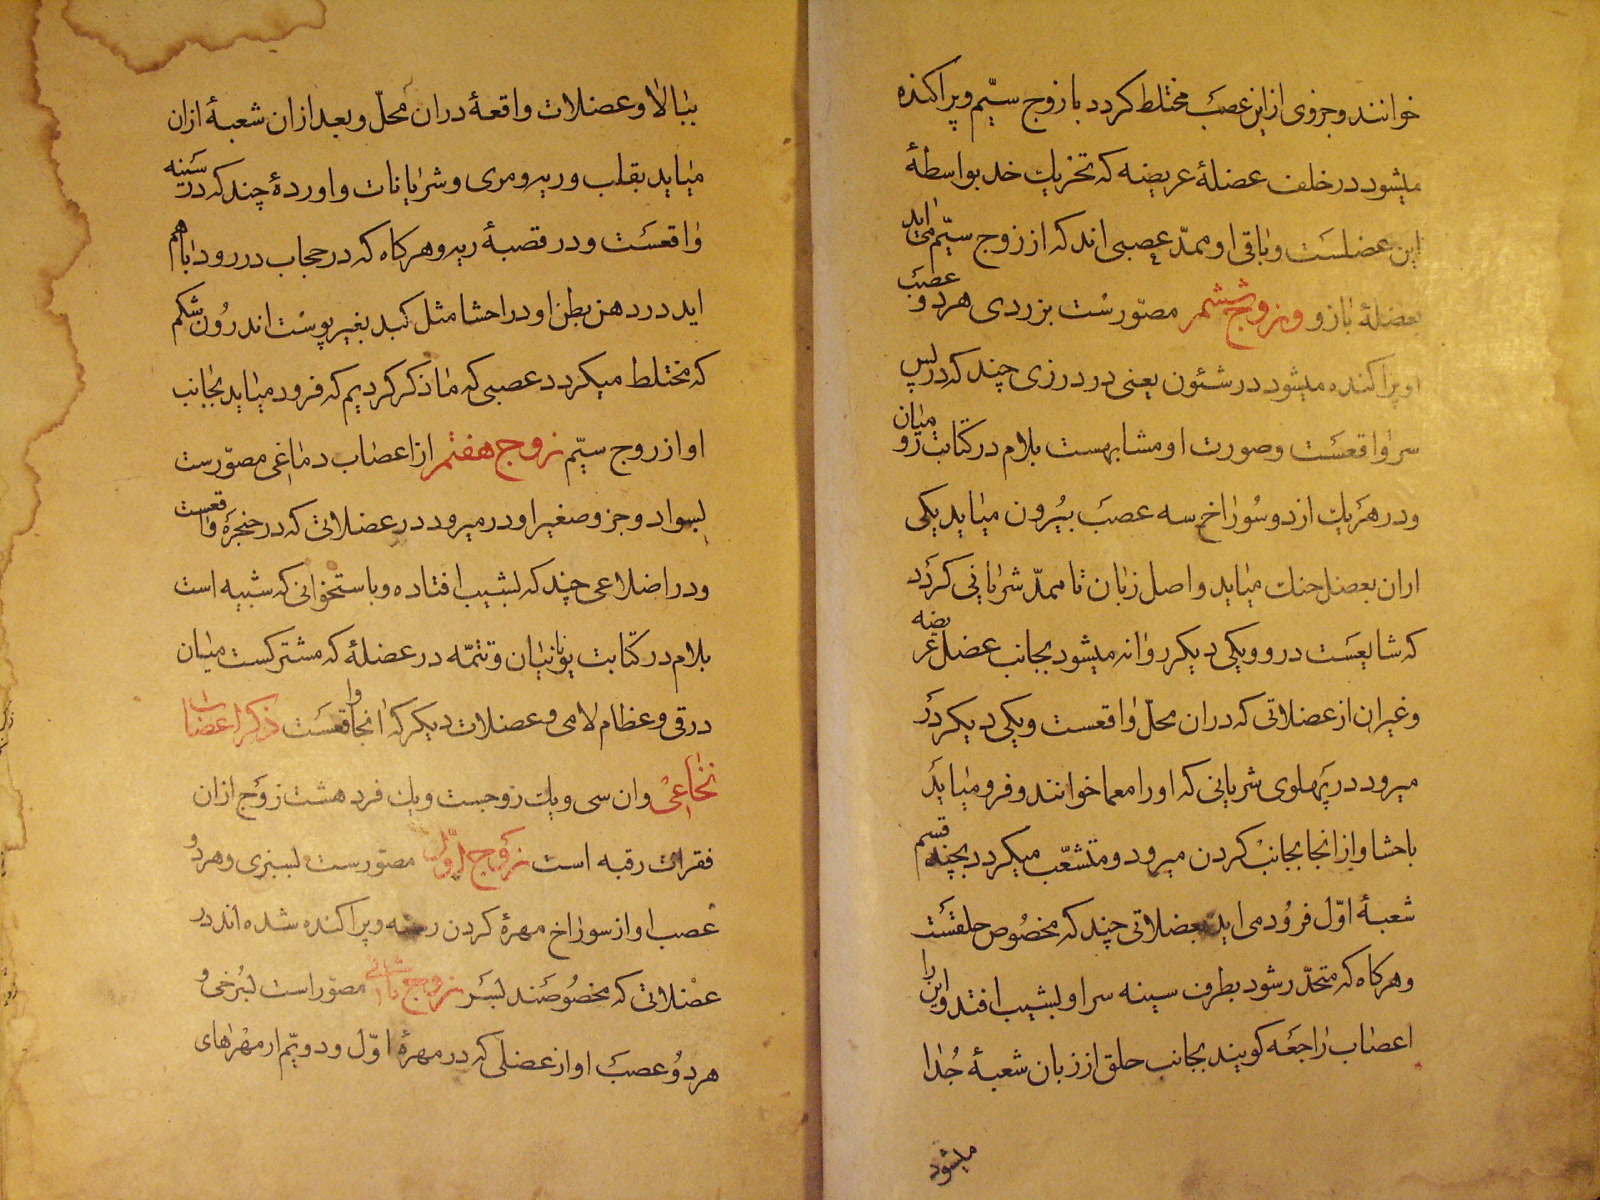 خوانند و جزوی از این عصب مختلط کردد با زوج سیّم و پراکنده
میشود در خلف عضلهٔ عریضه که تحریک خد بواسطهٔ
این عضلست و باقی او ممدّ عصبی اند که از زوج سیّم می اید
بعضلهٔ بازو و زوج ششم مصوّرست بزردی هر دو عصب
او پراکنده میشود در شئون یعنی در درزی چند که در پس
سر واقعست و صورت او مشابهست بلام در کتابت رو میان
و در هر یک از دو سوراخ سه عصب بیرون میاید یکی
ازان بعضل حنک میاید و اصل زبان تا ممدّ شریانی کردد
که شایعست درو و یکی دیکر روانه میشود بجانب عضل عریضه
و غیر ان از عضلاتی که دران محلّ واقعست و یکی دیکر در
میرود در پهلوی شریانی که اورا معما خوانند و فرو میاید
باحشا و از انجا بجانب کردن میرود و متشعّب میکردد بچند قسم
شعبهٔ اوّل فرود می اید بعضلاتی چند که مخصوص حلقست
و هرکاه که متحدّر شود بطرف سینه سر او بشیب افتد و این را
اعصاب راجعه کویند بجانب حلق از زبان شعبهٔ جُدا
میشود
ببالا و عضلات واقعهٔ دران محلّ و بعد ازان شعبهٔ ازان
میاید بقلب و ریه و مری و شریانات و اوردهٔ چند که در سینه
واقعست و در قصبهٔ ریه و هرکاه که در حجاب در رود با هم
اید در دهن بطن او در احشا مثل کبد بغیر پوست اندرون شکم
که مختلط میکردد عصبی که ما ذکر کردیم که فرود میاید بجانب
او از روج سیّم زوج هفتم از اعصاب دماغی مصوّرست
بسواد و جزو صغیر او در میرود در عضلاتی که در حنجره واقعست
و در اضلاعی چند که بشیب افتاده و باستخوانی که شبیه است
بلام در کتابت یونانیان و تتمّه در عضلهٔ که مشترکست میان
درقی و عظام لامی و عضلات دیکر که انجا واقعست ذکر اعصاب
نخاعی و ان سی و یک زوجست و یک فرد هشت زوج ازان
فقرات رقبه است زوج اوّل مصوّرست بسبزی و هر دو
عصب او از سوراخ مهرهٔ کردن رسته و پراکنده شده اند در
عضلاتی که مخصوصند بسر زوج ثانی مصوّر است بسُرخی و
هر دو عصب او از عضلی که در مهرهٔ اوّل و دویّم از مهرهای